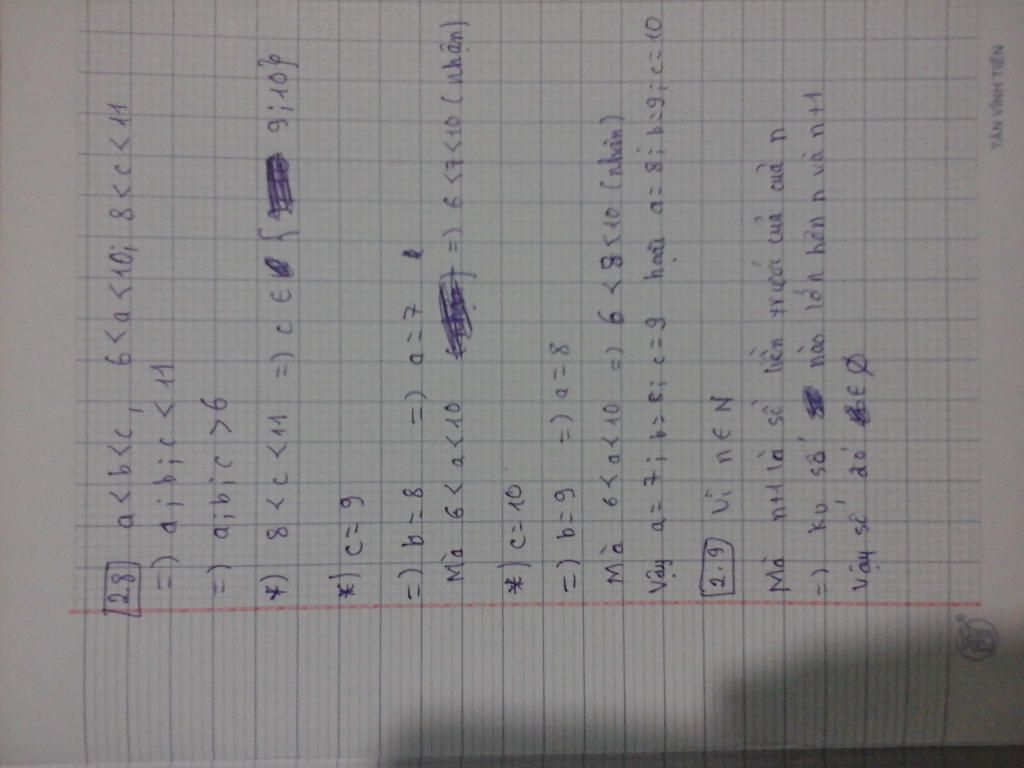 2.8 a < b < c, 6 < a < 10; 8 < c < 11
=) a; b; c < 11
=) a; b; c > 6
*) 8 < c < 11 =) c ∈ { 9; 10}
*) c = 9
=) b = 8 =) a = 7
Mà 6 < a < 10 =) 6 < 7 < 10 (nhận)
*) c = 10
=) b = 9 =) a = 8
Mà 6 < a < 10 =) 6 < 8 < 10 (nhận)
Vậy a = 7; b = 8; c = 9 hoặc a = 8; b = 9; c = 10
2.9 Vì n ∈ N
Mà n+1 là số liền trước của của n
=) ko số nào lớn hơn n và n+1
Vậy số đó ∈ ∅
TÂN VĨNH TIẾN